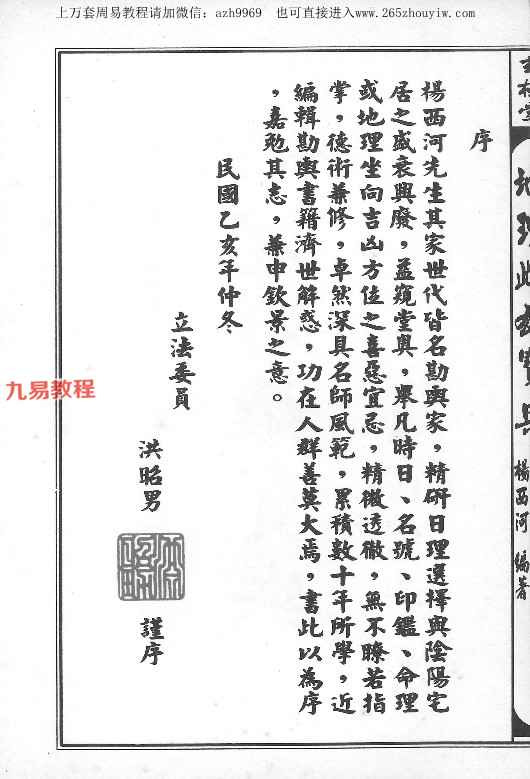 上万套周易教程请加微信：azh9969 也可直接进入www.265zhouyiw.com
序
楊西河先生其家世代皆名勘輿家，精研日理選擇與陰陽宅
居之盛衰興廢，益窺堂奧，舉凡時日、名號、印鑑、命理
或地理坐向吉凶方位之喜惡宜忌，精微透徹，無不瞭若指
掌，德術兼修，卓然深具名師風範，累積數十年所學，近
編輯勘輿書籍濟世解惑，功在人群善莫大焉，書此以為序
，嘉勉其志，兼申欽景之意。
民國乙亥年仲冬
立法委員
洪昭男
謹序
九易教程
楊西河 編著